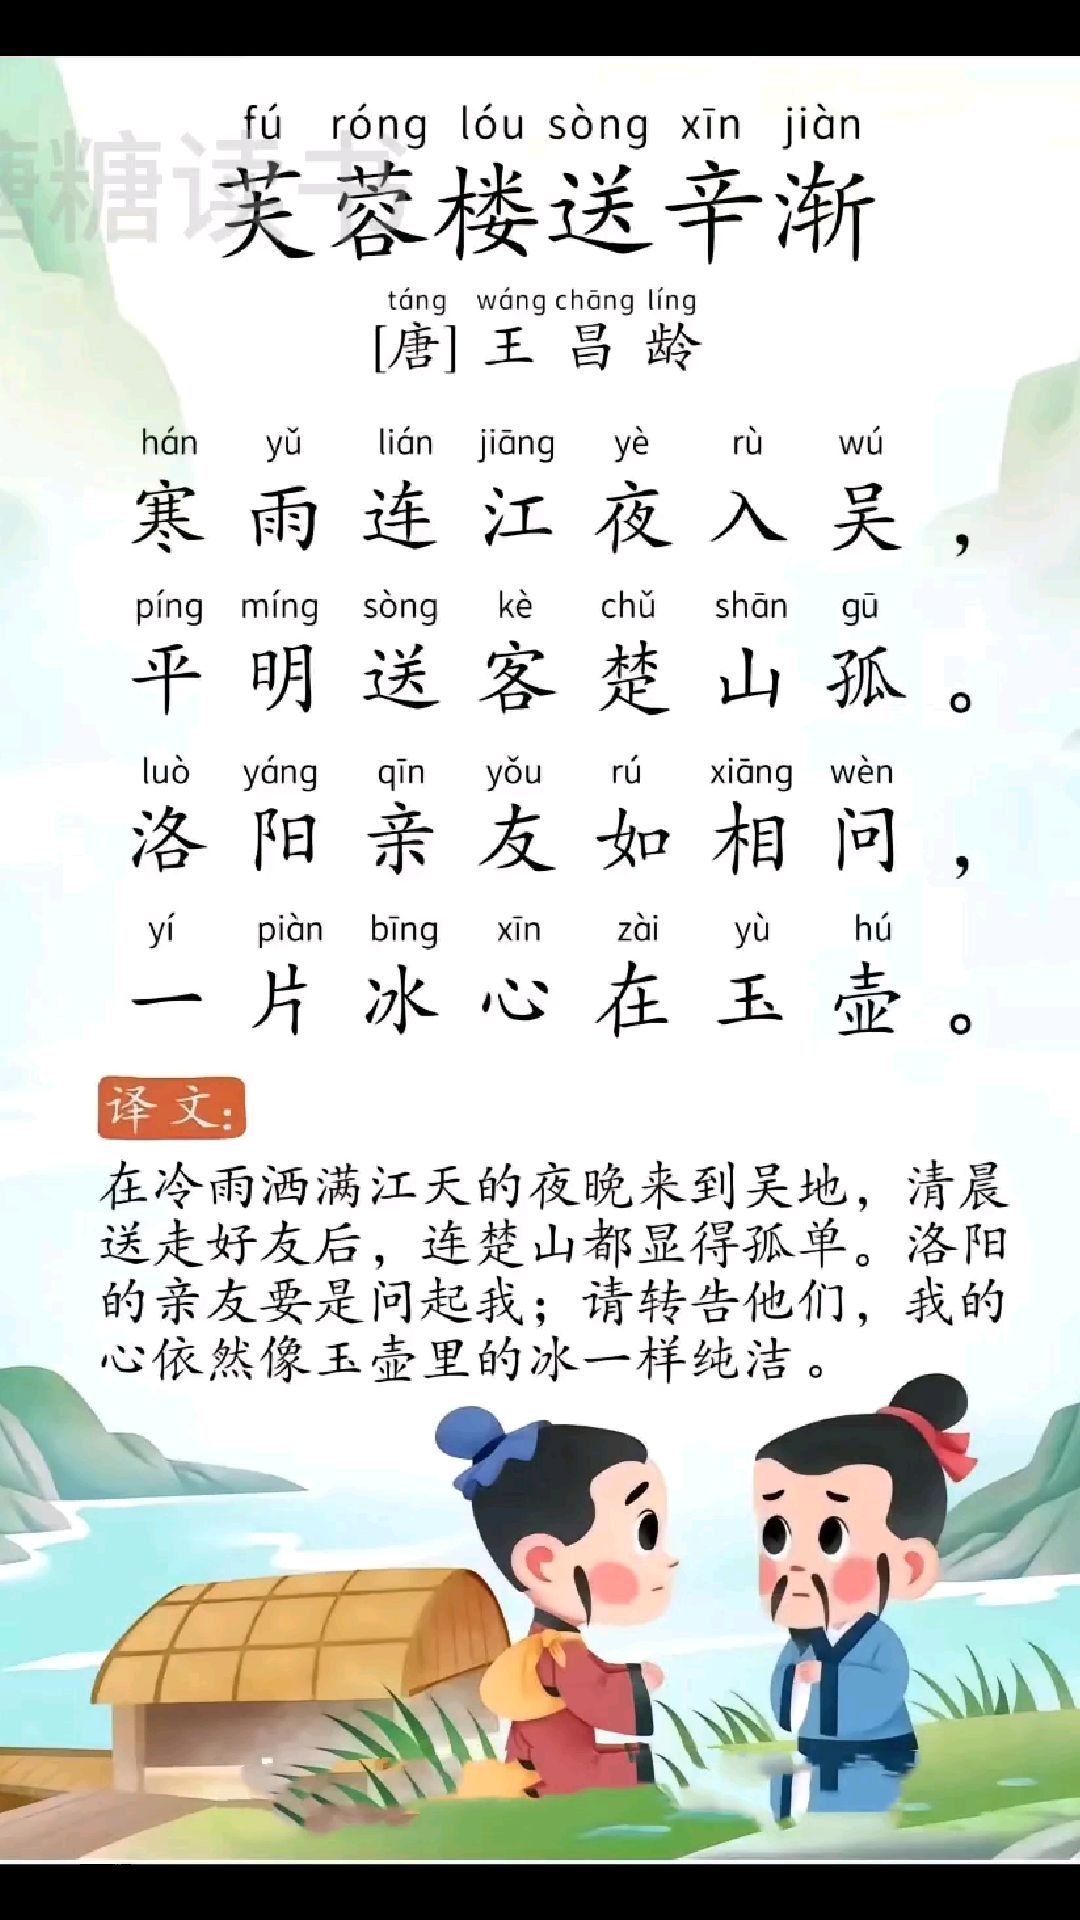 fú róng lóu sòng xīn jiàn
芙蓉楼送辛渐
táng wáng chāng líng
[唐] 王昌龄
hán yǔ lián jiāng yè rù wú
寒雨连江夜入吴，
píng míng sòng kè chǔ shān gū
平明送客楚山孤。
luò yáng qīn yǒu rú xiāng wèn
洛阳亲友如相问，
yí piàn bīng xīn zài yù hú
一片冰心在玉壶。
译文:
在冷雨洒满江天的夜晚来到吴地，清晨
送走好友后，连楚山都显得孤单。洛阳
的亲友要是问起我；请转告他们，我的
心依然像玉壶里的冰一样纯洁。
糖读书